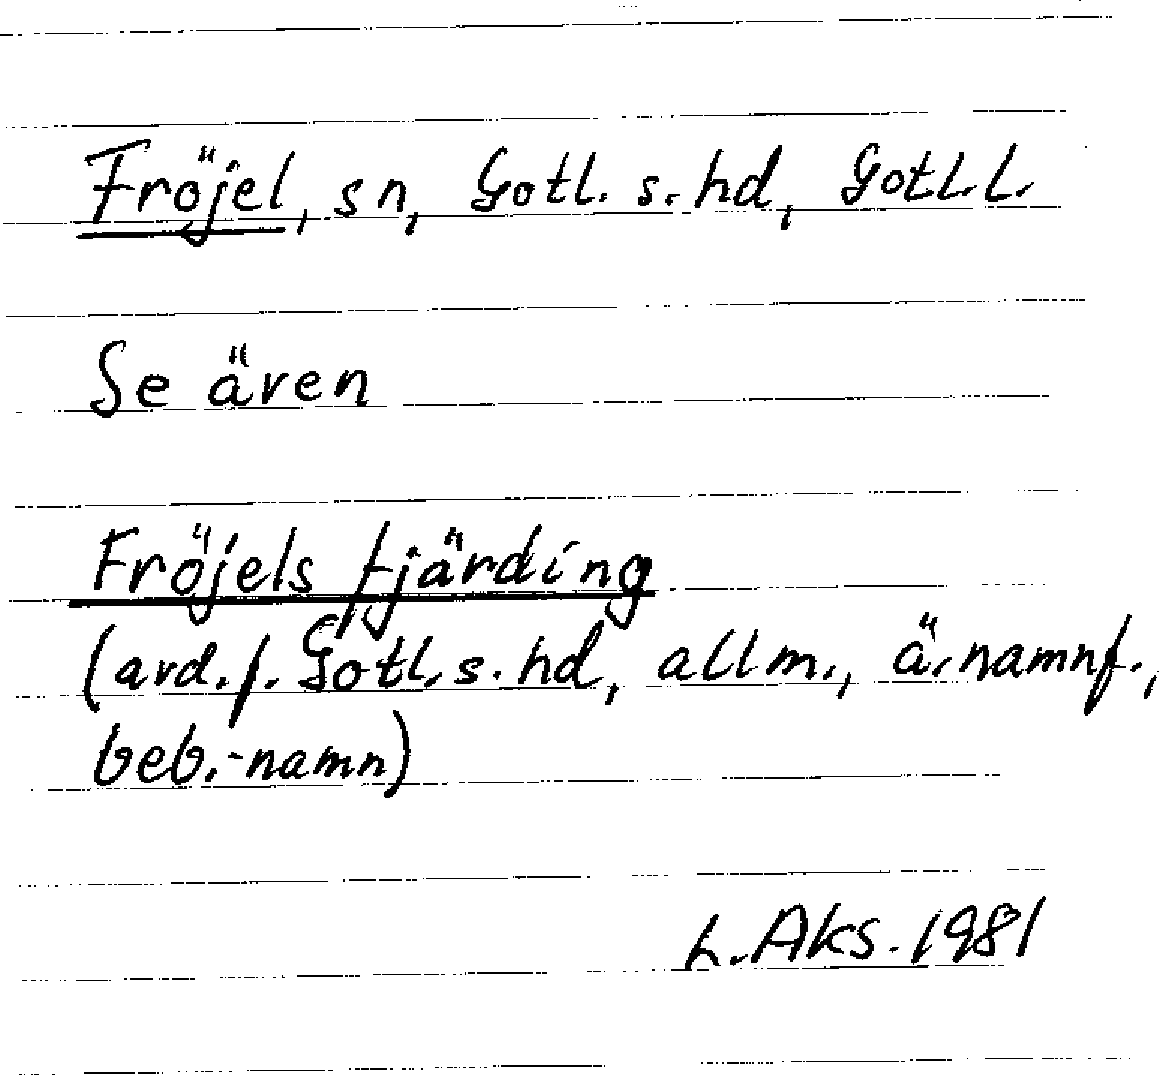 Fröjel, sn, Gotl. s. hd, Gotl.l.
Se även
Fröjels fjärding
(avd. f. Gotl. s. hd, allm., ä. namnf.,
beb.-namn)
L. Aks. 1981